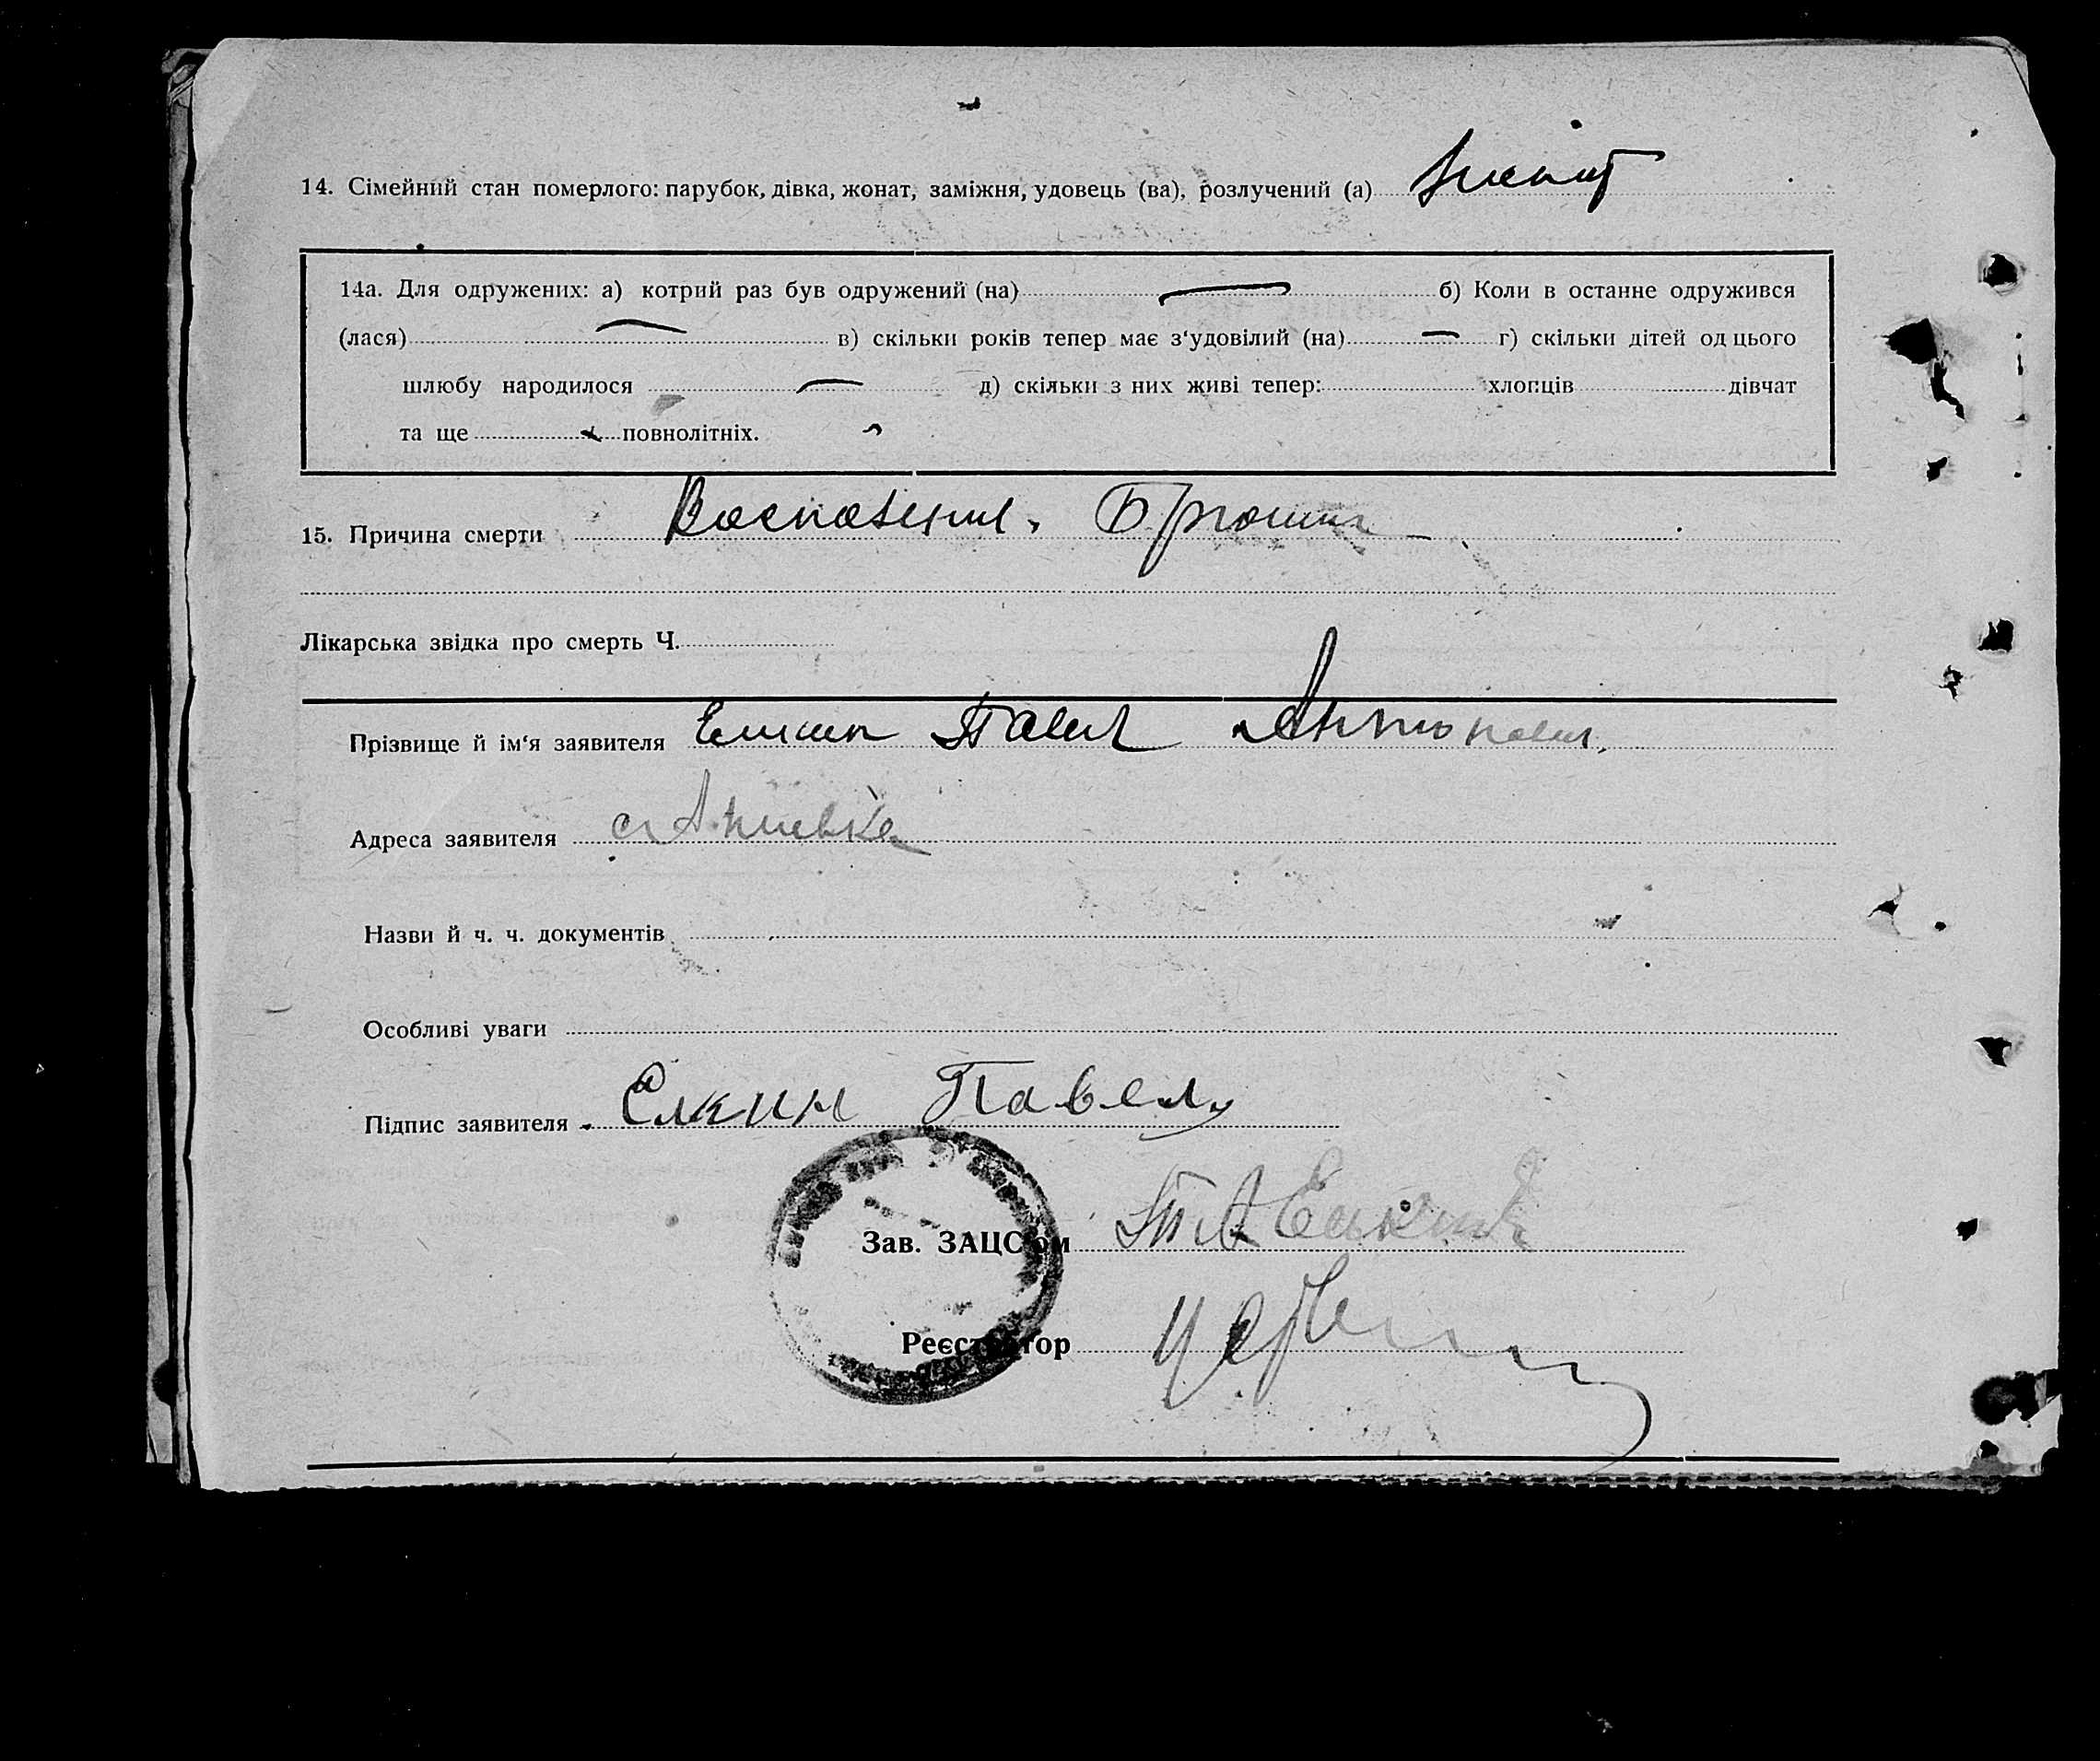 14. Сімейний стан померлого: парубок, дівка, жонат, заміжня, удовець (ва), розлучений (а)
14а. Для одружених: а) котрий раз був одружений (на) б) Коли в останне одружився
(лася) в) скільки років тепер має з‘удовілий (на) г) скільки дітей од цього
шлюбу народилося д) скільки з них живі тепер: хлопців дівчат
та ще повнолітніх.
15. Причина смерти
Лікарська звідка про смерть Ч.
Прізвище й ім‘я заявителя Елкин Павел Антонович
Адреса заявителя
Назви й ч. ч. документів
Особливі уваги
Підпис заявителя Елкин Павел
Зав. ЗАЦС‘ом
Реєстратор